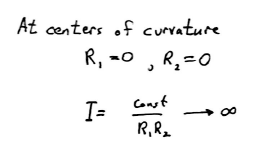 At centers of curvature
R₁ = 0 , R₂ = 0
I = const / R₁R₂ → ∞